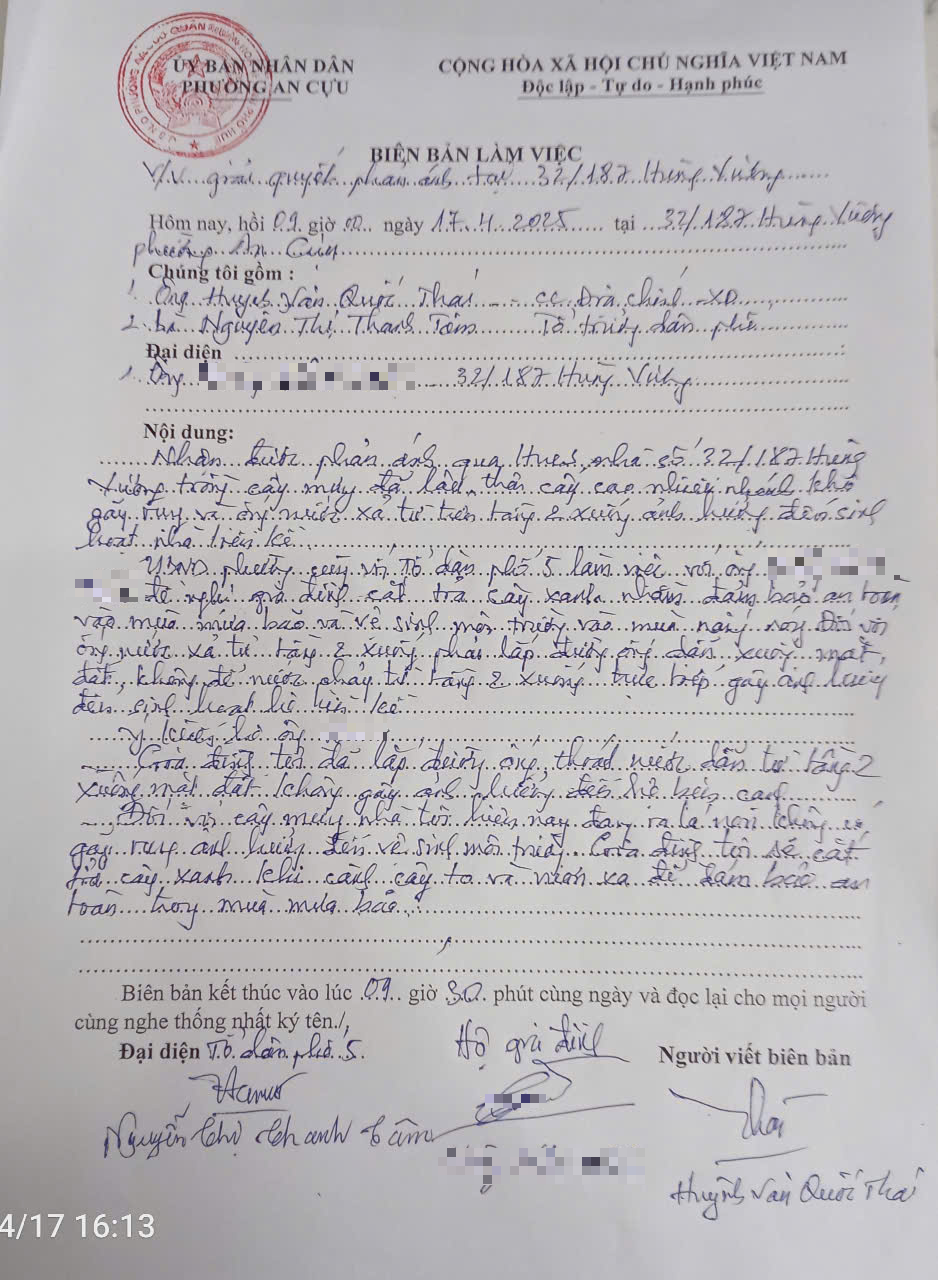 ỦY BAN NHÂN DÂN
PHƯỜNG AN CỰU
CỘNG HÒA XÃ HỘI CHỦ NGHĨA VIỆT NAM
Độc lập - Tự do - Hạnh phúc
BIÊN BẢN LÀM VIỆC
V/v giải quyết phản ánh tại 32/187 Hùng Vương
Hôm nay, hồi 09 giờ 00 ngày 17.4.2025 tại 32/187 Hùng Vương
phường An Cựu
Chúng tôi gồm :
1. Ông Huỳnh Văn Quốc Thái - CC Địa chính - XD
2. bà Nguyễn Thị Thanh Tâm Tổ trưởng dân phố
Đại diện
1. Ông 32/187 Hùng Vương
Nội dung:
Nhận được phản ánh qua HueS, nhà số 32/187 Hùng
Vương trồng cây mưng đã lâu, thân cây cao nhiều nhánh khô
gãy rụng và ống nước xả từ trên tầng 2 xuống ảnh hưởng đến sinh
hoạt nhà liền kề.
UBND phường cùng với Tổ dân phố 5 làm việc với ông
đề nghị gia đình cắt tỉa cây xanh nhằm đảm bảo an toàn
vào mùa mưa bão và vệ sinh môi trường vào mùa nắng này. Đối với
ống nước xả từ tầng 2 xuống phải lắp đường ống dẫn xuống mặt
đất, không để nước chảy từ tầng 2 xuống trực tiếp gây ảnh hưởng
đến sinh hoạt hộ liền kề
Ý kiến hộ ông
Gia đình tôi đã lắp đường ống thoát nước dẫn từ tầng 2
xuống mặt đất không gây ảnh hưởng đến hộ bên cạnh
Đối với cây mưng nhà tôi hiện nay đang ra lá non không có
gãy rụng ảnh hưởng đến vệ sinh môi trường. Gia đình tôi sẽ cắt
tỉa cây xanh khi cành cây to và vươn xa để đảm bảo an
toàn trong mùa mưa bão.
Biên bản kết thúc vào lúc 09 giờ 30 phút cùng ngày và đọc lại cho mọi người
cùng nghe thống nhất ký tên./.
Đại diện Tổ dân phố 5
Hộ gia đình
Người viết biên bản
Nguyễn Thị Thanh Tâm
Huỳnh Văn Quốc Thái
4/17 16:13